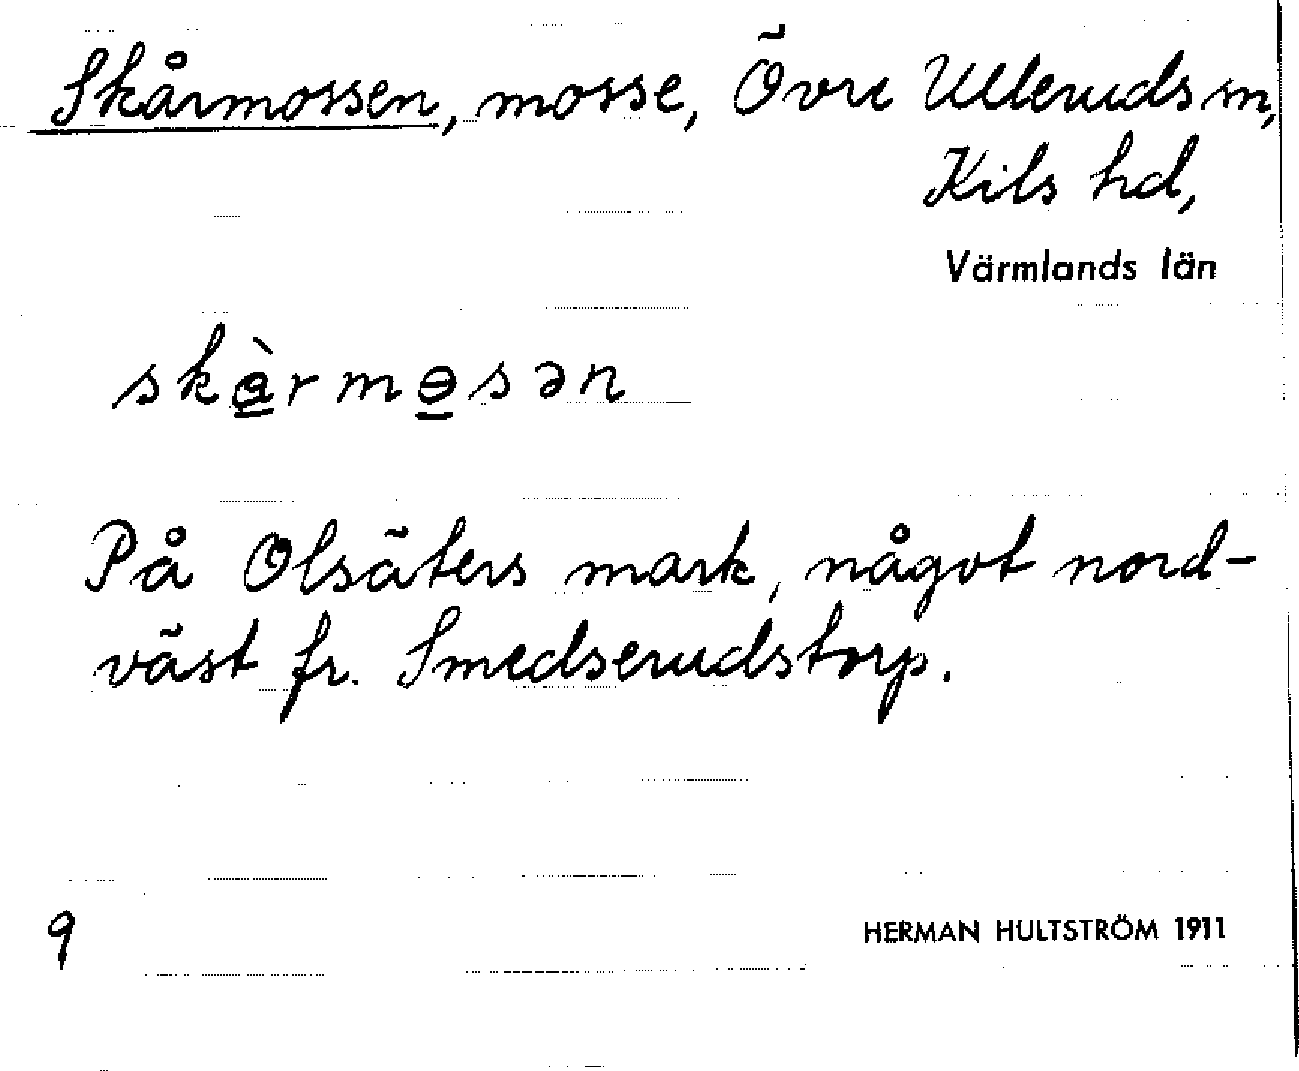 Skårmossen, mosse, Övre Ulleruds sn,
Kils hd,
Värmlands län
skàrmɵsən
På Olsäters mark, något nord-
väst fr. Smedserudstorp.
9
HERMAN HULTSTRÖM 1911